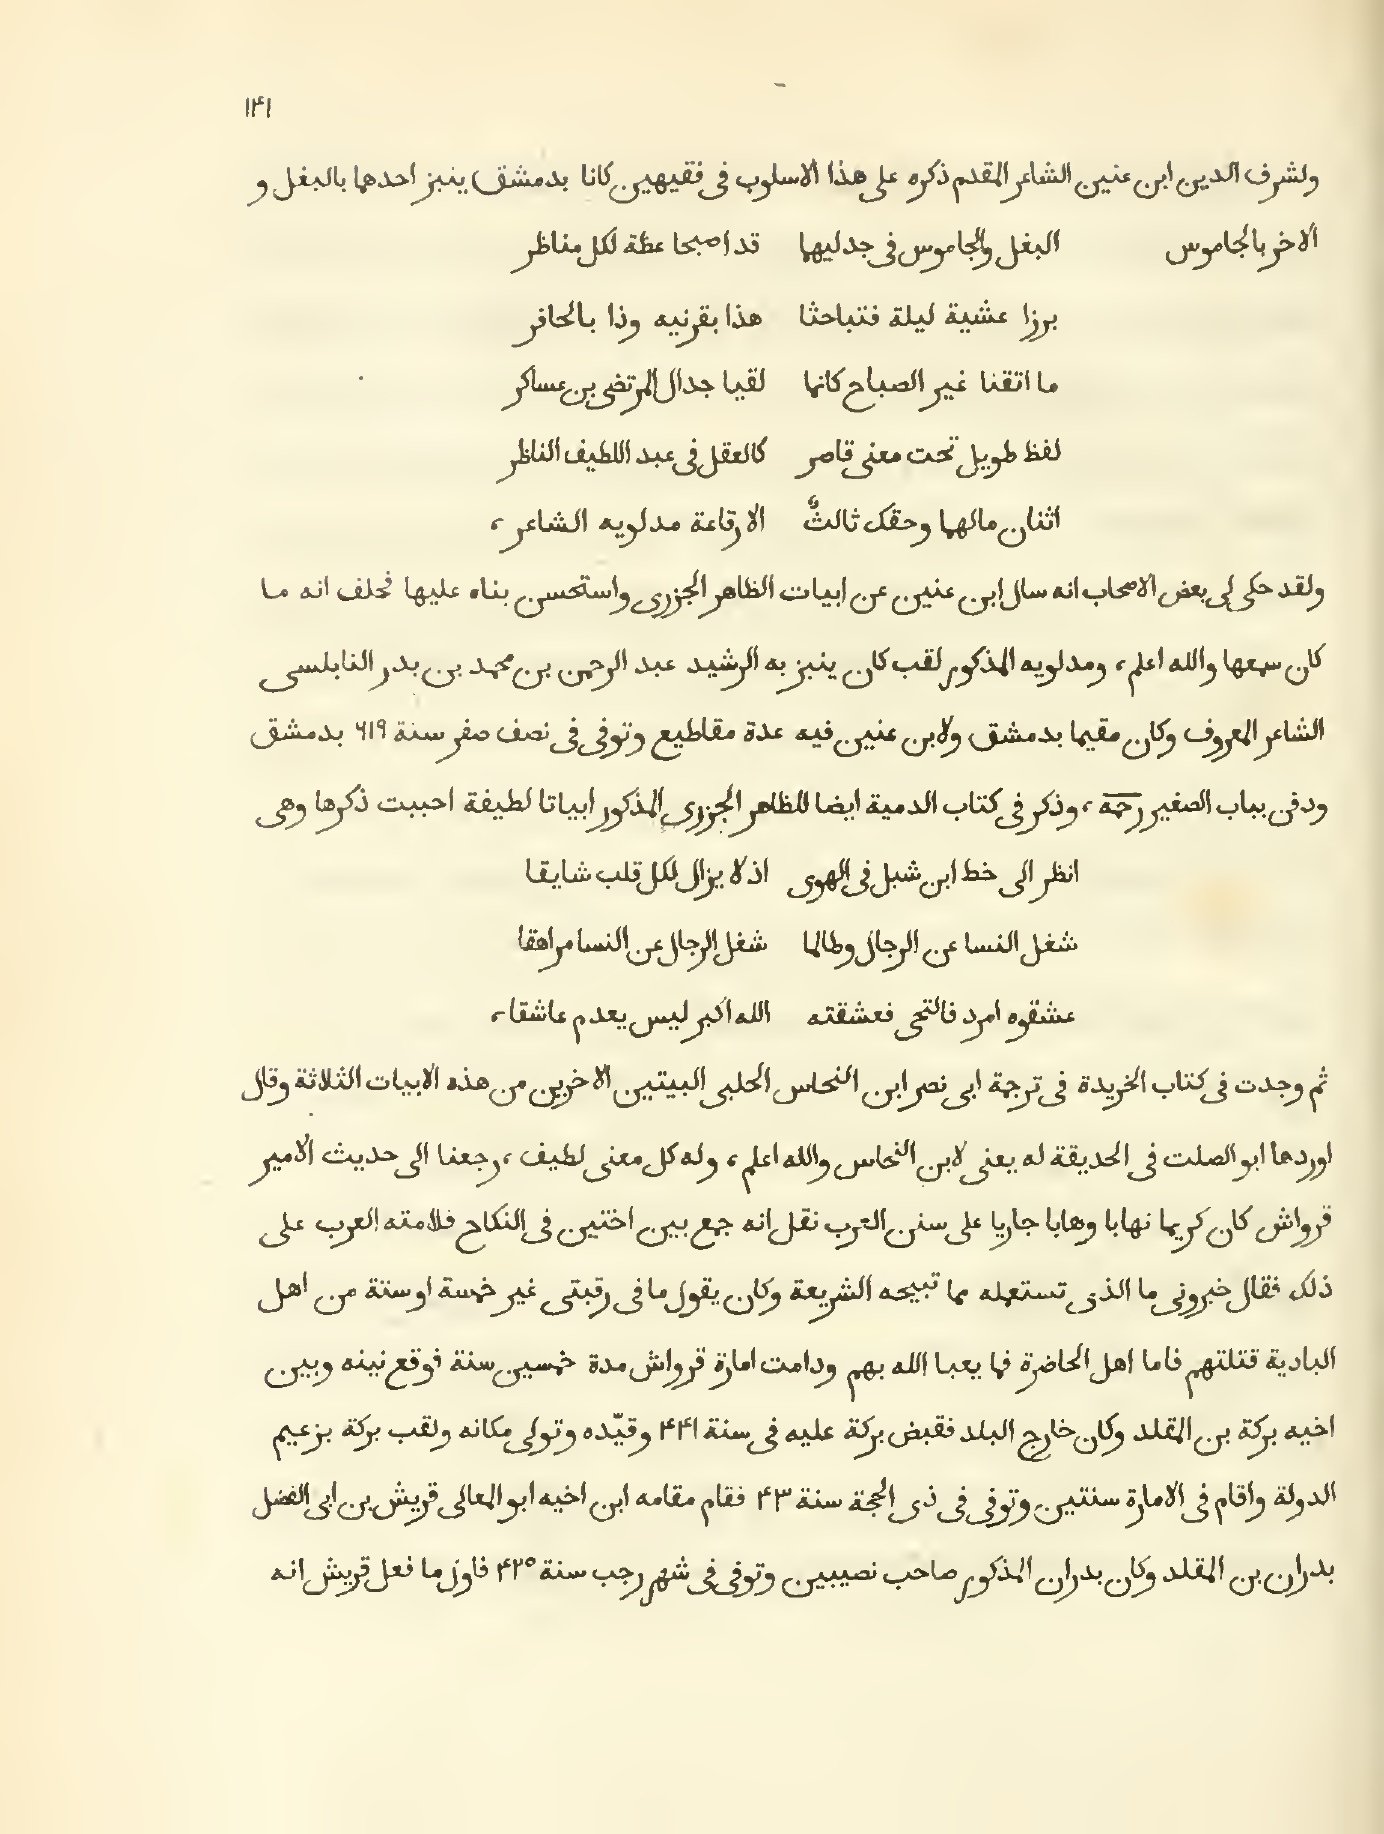 ١٤١
ولشرف الدين ابن عنين الشاعر المقدم ذكره على هذا الاسلوب فى فقيهين كانا بدمشق ينبز احدهما بالبغل و
الاخر بالجاموس البغل والجاموس فى جدليهما قد اصبحا عظة لكل مناظر
برزا عشية ليلة فتباحثا هذا بقرنيه وذا بالحافر
ما اتقنا غير الصياح كانما لقيا جدال المرتضى بن عساكر
لفظ طويل تحت معنى قاصر كالعقل فى عبد اللطيف الناظر
اثنان مالهما وحقك ثالثٌ الا رقاعة مدلويه الشاعر ،
ولقد حكى لى بعض الاصحاب انه سال ابن عنين عن ابيات الظاهر الجزرى واستحسن بناه عليها فحلف انه ما
كان سمعها والله اعلم ، ومدلويه المذكور لقب كان ينبز به الرشيد عبد الرحمن بن محمد بن بدر النابلسى
الشاعر المعروف وكان مقيما بدمشق ولابن عنين فيه عدة مقاطيع وتوفى فى نصف صفر سنة ٦١٩ بدمشق
ودفن بباب الصغير رحمه ، وذكر فى كتاب الدمية ايضا للظاهر الجزرى المذكور ابياتا لطيفة احببت ذكرها وهى
انظر الى خط ابن شبل فى الهوى اذ لا يزال لكل قلب شايقا
شغل النسا عن الرجال وطالما شغل الرجال عن النسا مراهقا
عشقوه امرد فالتحى فعشقته الله اكبر ليس يعدم عاشقا ،
ثم وجدت فى كتاب الخريدة فى ترجمة ابى نصر ابن النحاس الحلبى البيتين الاخرين من هذه الابيات الثلاثة وقال
اوردها ابو الصلت فى الحديقة له يعنى لابن النحاس والله اعلم ، وله كل معنى لطيف ، رجعنا الى حديث الامير
قرواش كان كريما نهابا وهابا جاريا على سنن العرب نقل انه جمع بين اختين فى النكاح فلامته العرب على
ذلك فقال خبرونى ما الذى تستعمله مما تبيحه الشريعة وكان يقول ما فى رقبتى غير خمسة او ستة من اهل
البادية قتلتهم فاما اهل الحاضرة فما يعبا الله بهم ودامت امارة قرواش مدة خمسين سنة فوقع نينه وبين
اخيه بركة بن المقلد وكان خارج البلد فقبض بركة عليه فى سنة ٤٤١ وقيّده وتولى مكانه ولقب بركة بزعيم
الدولة واقام فى الامارة سنتين وتوفى فى ذى الحجة سنة ٤٣ فقام مقامه ابن اخيه ابو المعالى قريش بن ابى الفضل
بدران بن المقلد وكان بدران المذكور صاحب نصيبين وتوفى فى شهر رجب سنة ٤٢٥ فاول ما فعل قريش انه